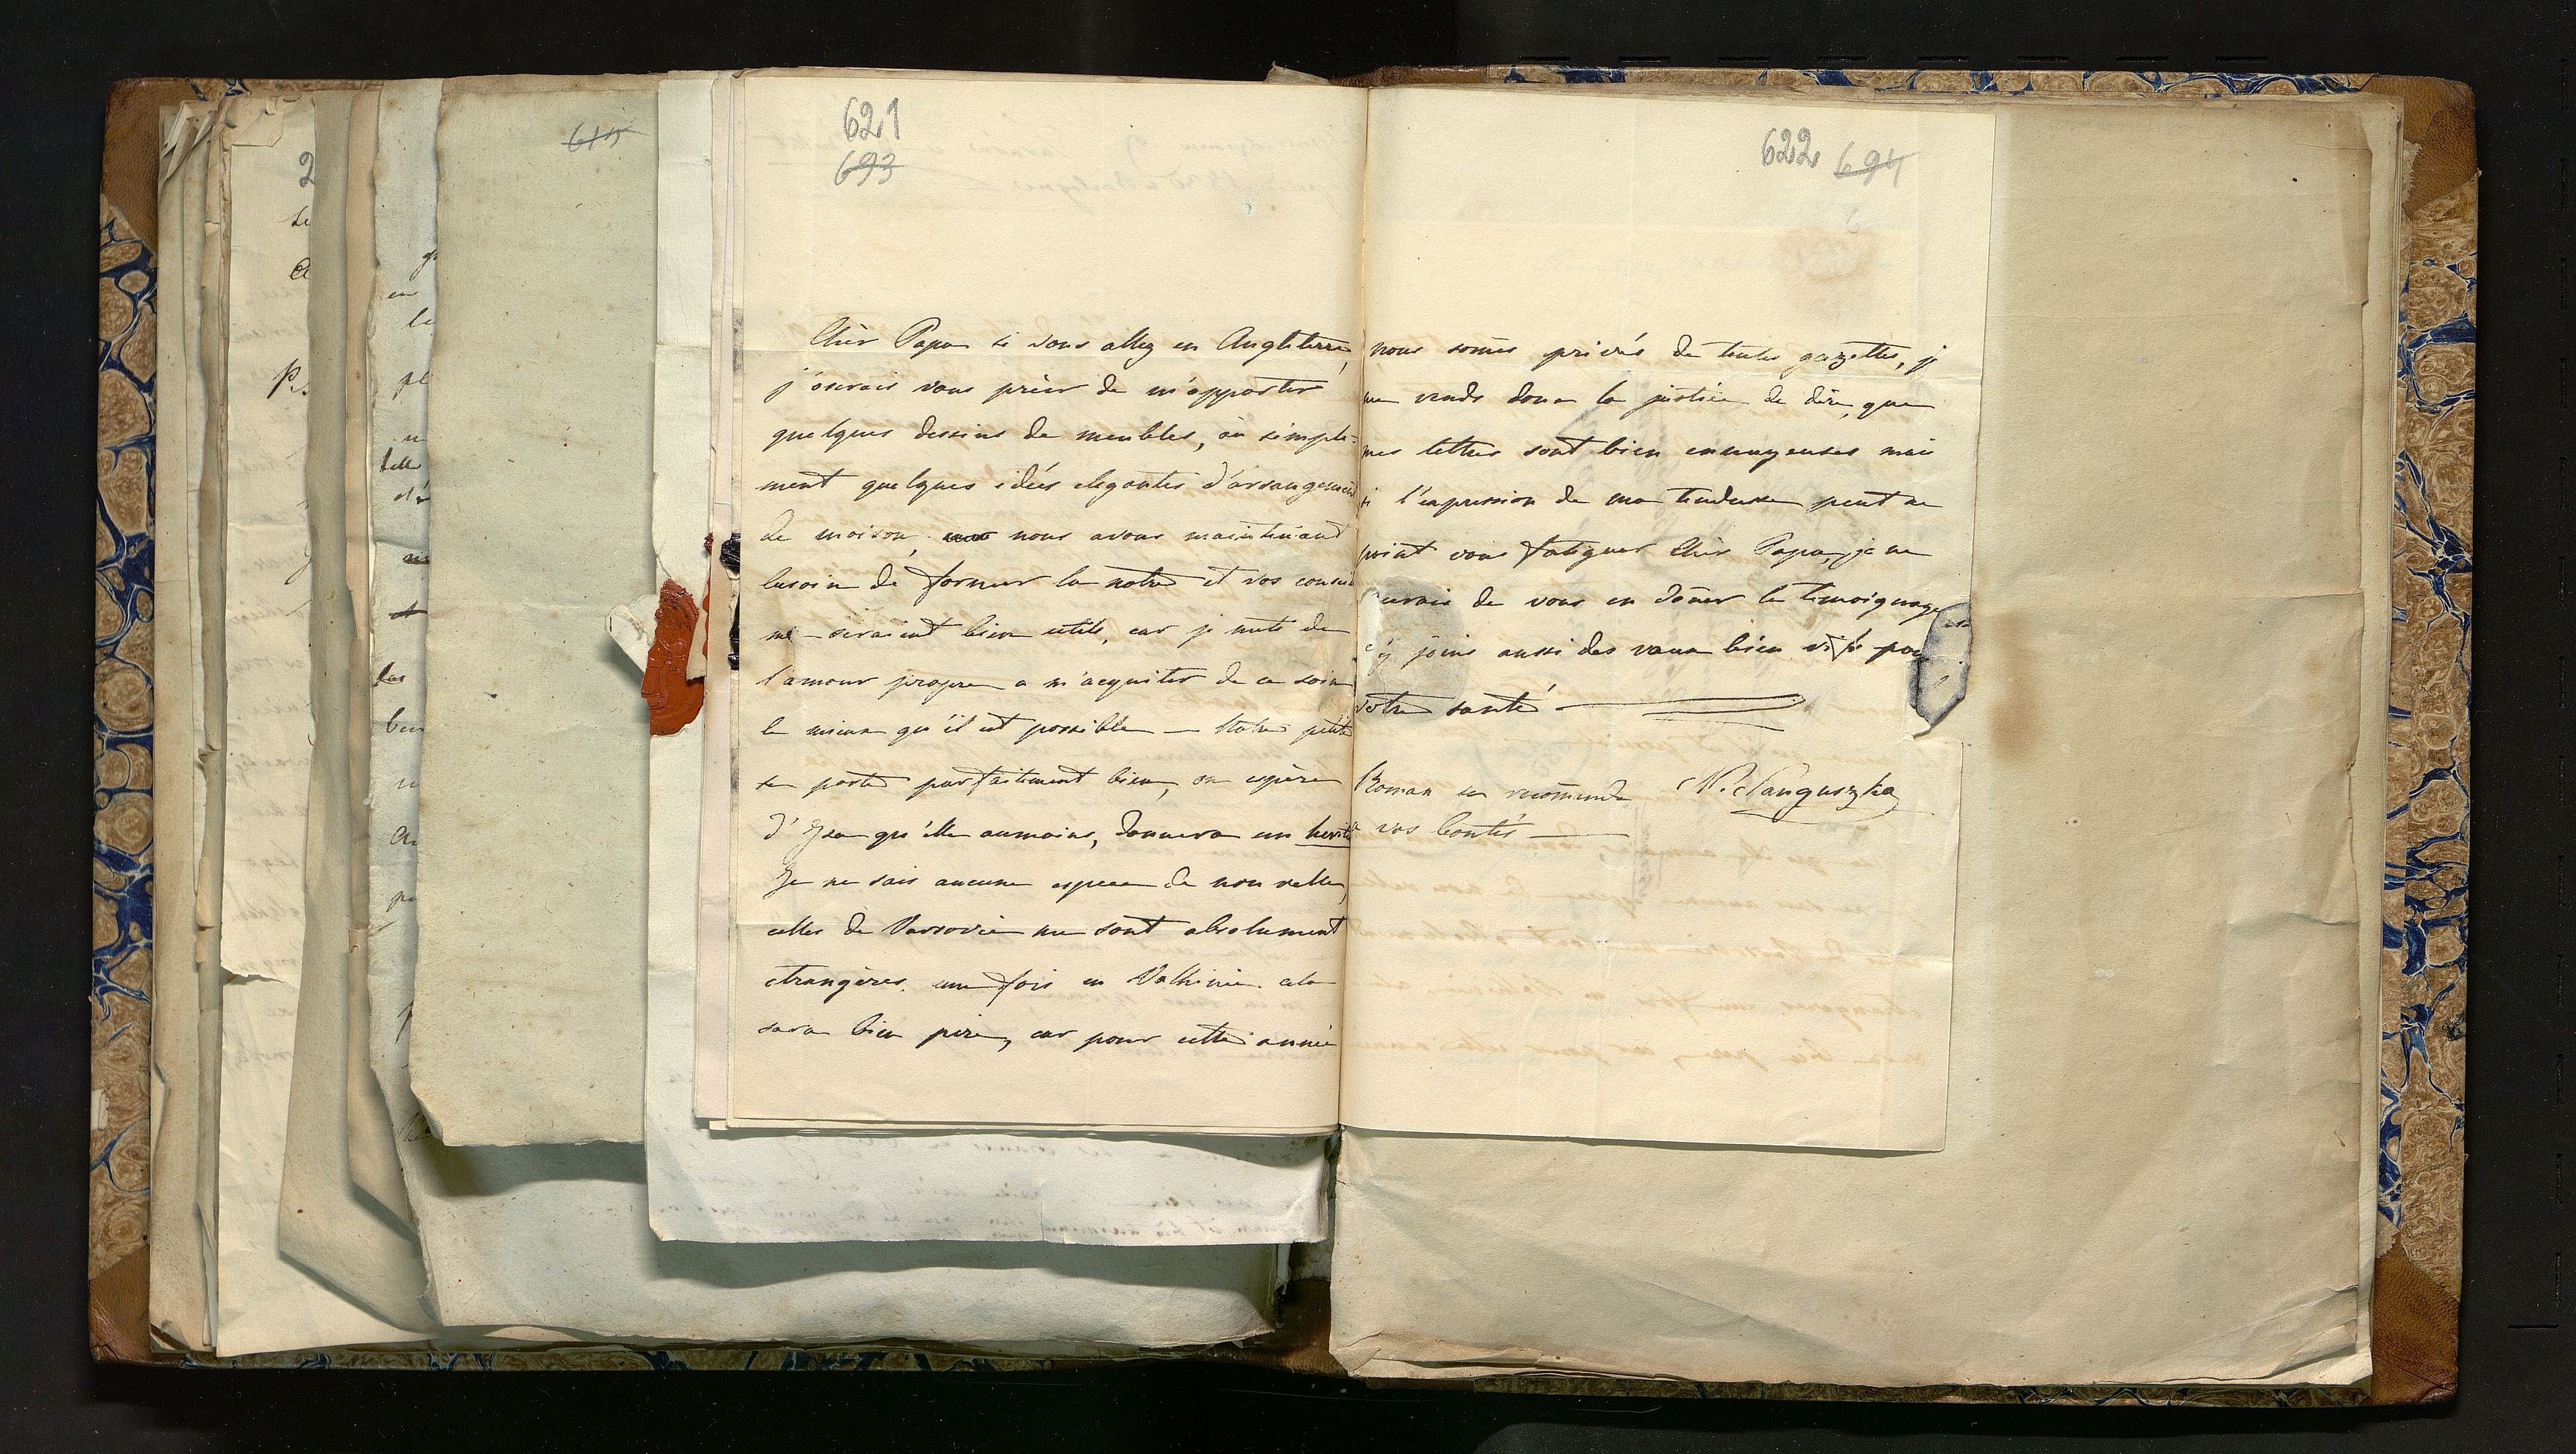 621
693
Cher Papa si vous allez en Angleterre,
j'oserais vous prier de m'apporter
quelques dessins de meubles, ou simple=
ment quelques idées elegantes d'arrangement
de maison, nous avons maintenant
besoin de former la notre et vos conseils
me seraient bien utils, car je mets de
l'amour propre a m'acquiter de ce soin
le mieux qu'il est possible — Notre petite
se porte parfaitement bien, on espère
d'Iza qu'elle aumoins, donnera un heritie
Je ne sais aucune espece de nouvelle,
celles de Varsovie me sont absolument
etrangères. une fois en Volhinie cela
sera bien pire, car pour cette année
622 694
nous somes privés de toutes gazettes, je
me rends donc la justice de dire, que
mes lettres sont bien ennuyeuses mais
si l'expression de ma tendresse peut ne
point vous fatiguer Cher Papa, je ne
de vous en doner le temoignage
j'y joins aussi des vœux bien vifs pour
votre santé
Roman se recomende N. Sanguszko
a vos bontés —
615